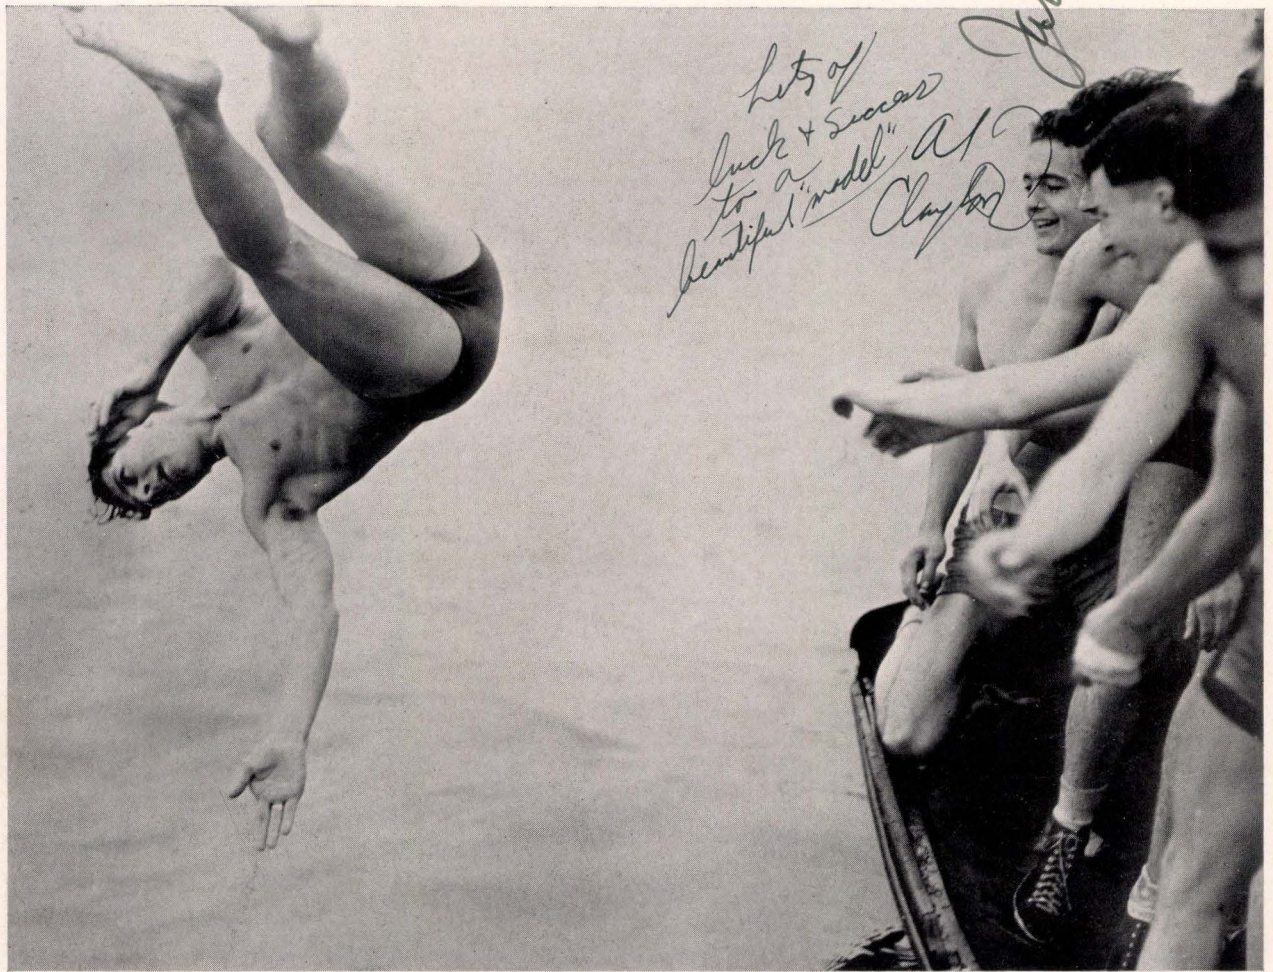 Lots of
luck & Success
to a
beautiful "model"
Al
Clayton